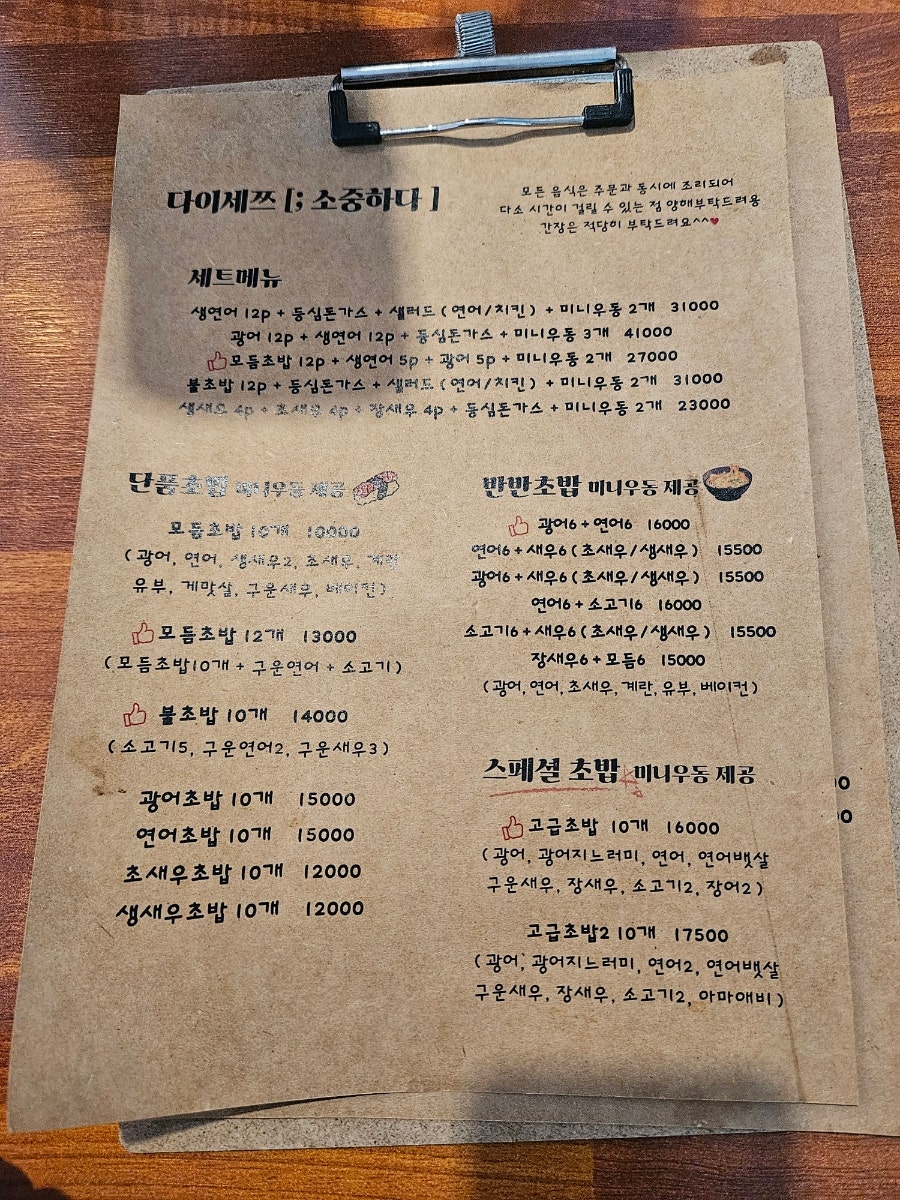 다이세쯔 [; 소중하다 ]
모든 음식은 주문과 동시에 조리되어
다소 시간이 걸릴 수 있는 점 양해부탁드려용
간장은 적당히 부탁드려요^^♥
세트메뉴
생연어 12p + 등심돈가스 + 샐러드 ( 연어/치킨 ) + 미니우동 2개 31000
광어 12p + 생연어 12p + 등심돈가스 + 미니우동 3개 41000
모듬초밥 12p + 생연어 5p + 광어 5p + 미니우동 2개 27000
불초밥 12p + 등심돈가스 + 샐러드 ( 연어/치킨 ) + 미니우동 2개 31000
생새우 4p + 초새우 4p + 장새우 4p + 등심돈가스 + 미니우동 2개 23000
단품초밥 미니우동 제공
모듬초밥 10개 10000
( 광어, 연어, 생새우2, 초새우, 계란
유부, 게맛살, 구운새우, 베이컨)
모듬초밥 12개 13000
( 모듬초밥10개 + 구운연어 + 소고기 )
불초밥 10개 14000
( 소고기5, 구운연어2, 구운새우3 )
광어초밥 10개 15000
연어초밥 10개 15000
초새우초밥 10개 12000
생새우초밥 10개 12000
반반초밥 미니우동 제공
광어6 + 연어6 16000
연어6 + 새우6 ( 초새우/생새우 ) 15500
광어6 + 새우6 ( 초새우/생새우 ) 15500
연어6 + 소고기6 16000
소고기6 + 새우6 ( 초새우/생새우 ) 15500
장새우6 + 모듬6 15000
( 광어, 연어, 초새우, 계란, 유부, 베이컨 )
스페셜 초밥 미니우동 제공
고급초밥 10개 16000
( 광어, 광어지느러미, 연어, 연어뱃살
구운새우, 장새우, 소고기2, 장어2 )
고급초밥2 10개 17500
( 광어, 광어지느러미, 연어2, 연어뱃살
구운새우, 장새우, 소고기2, 아마애비 )